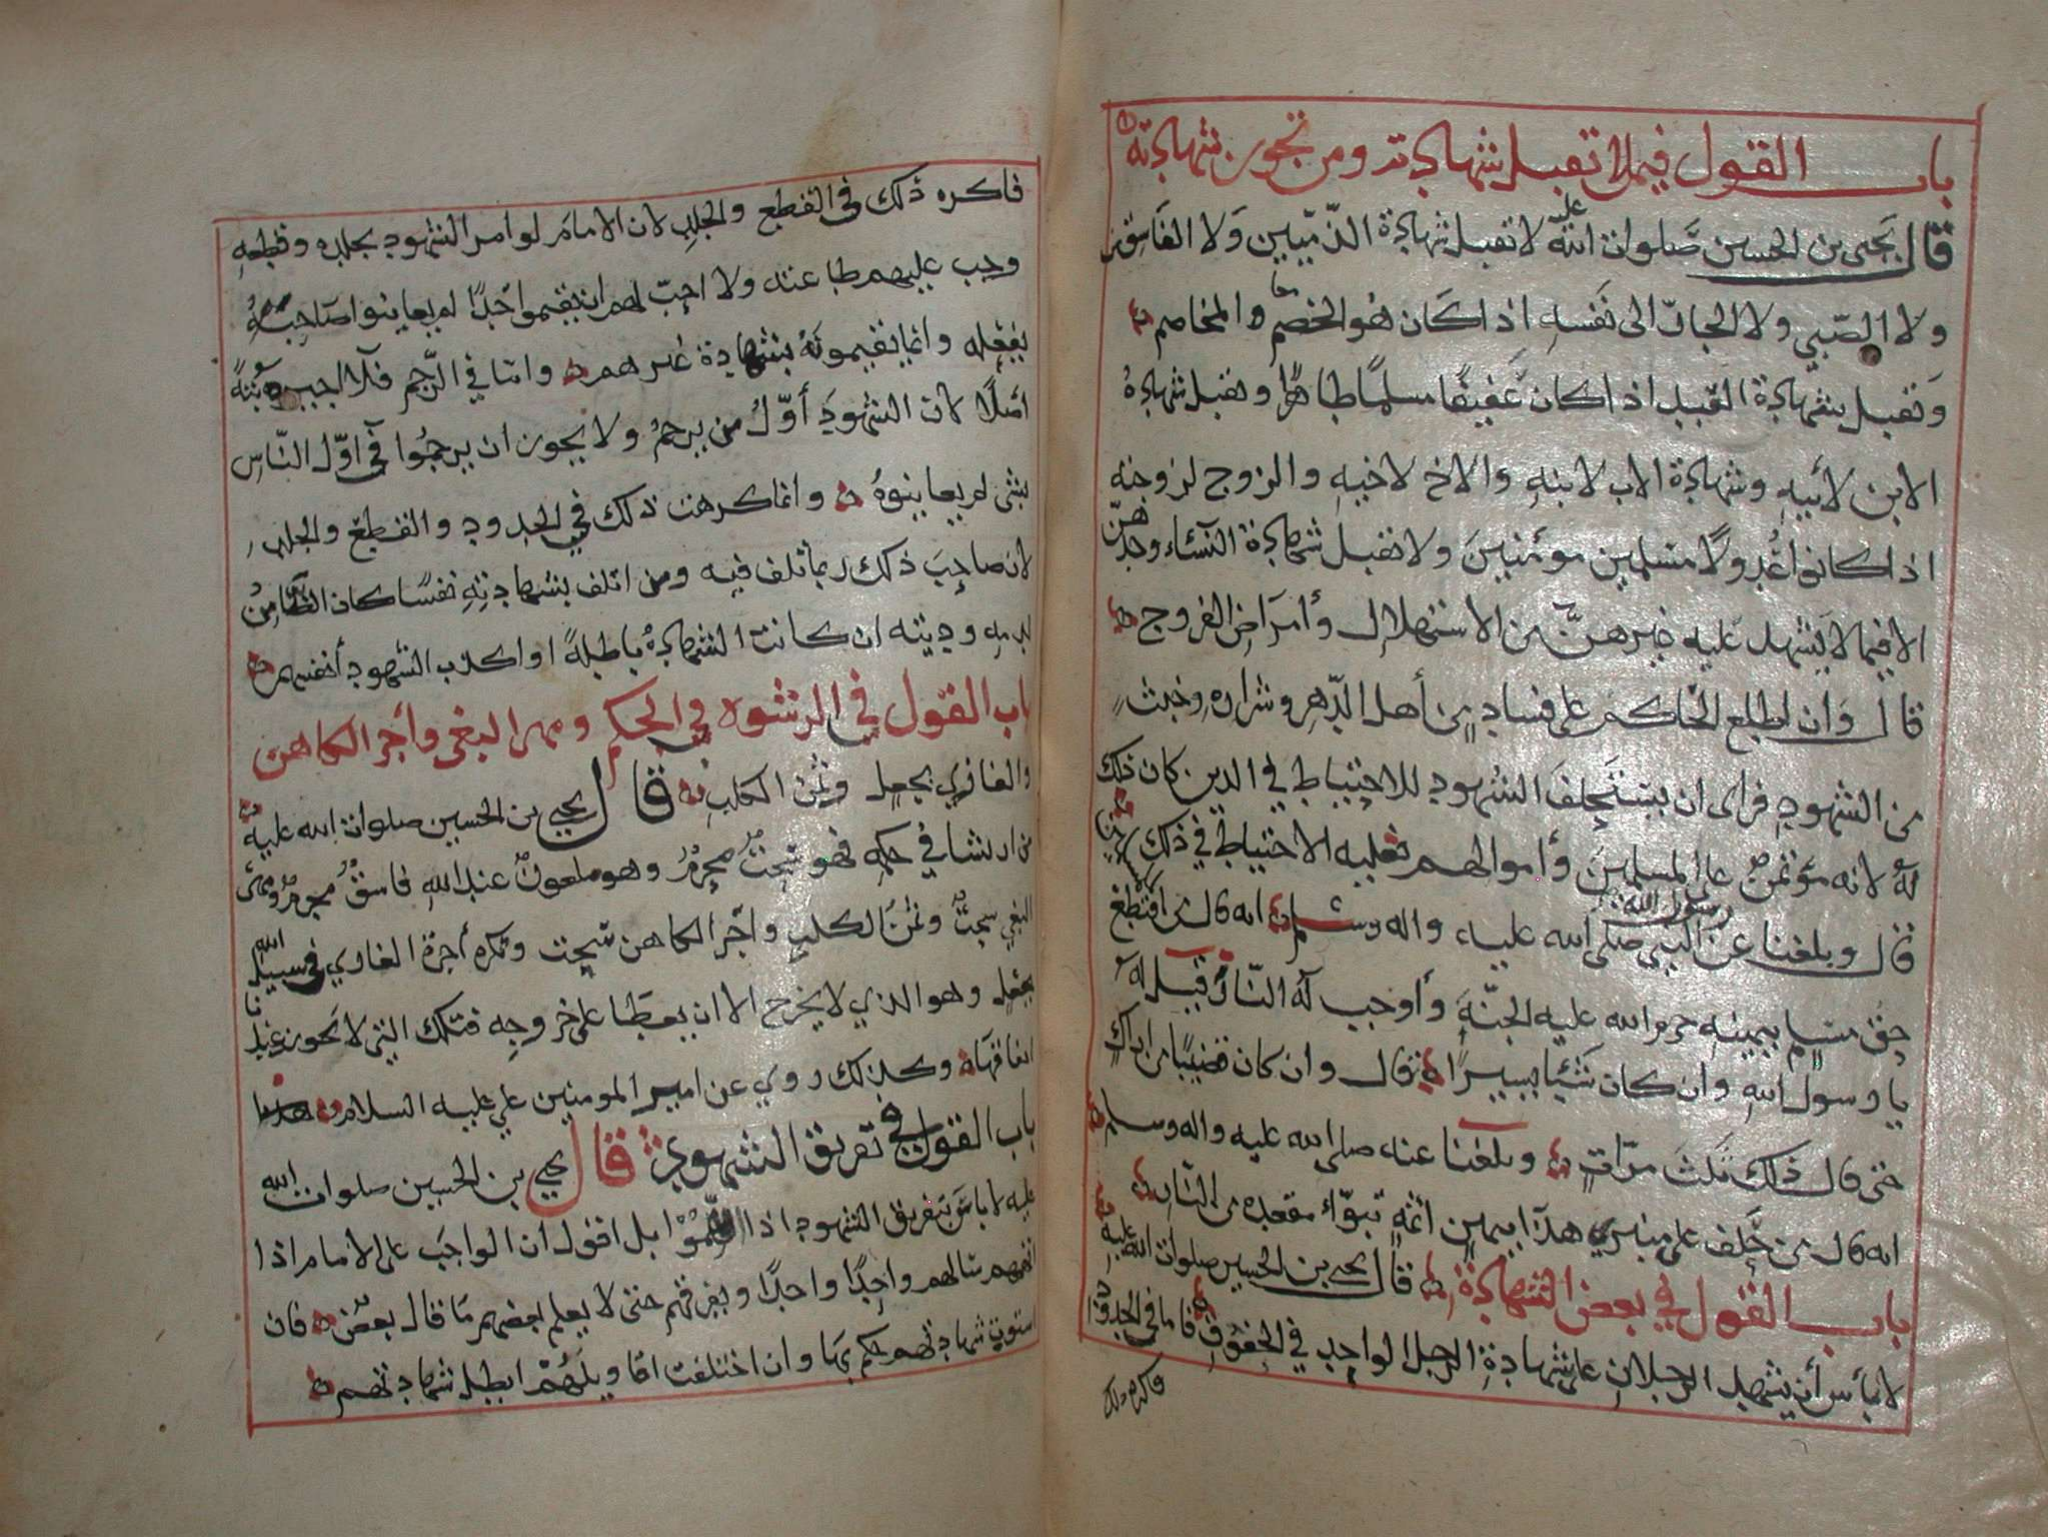 باب القول فيما لا تقبل شهادته ومن تجوز شهادته
قال يحيى بن الحسين صلوات الله عليه لا تقبل شهادة الذميين ولا الفاسقين
ولا الصبي ولا الجار الى نفسه اذا كان هو الخصم والمخاصم
وتقبل شهادة العبد اذا كان عفيفا مسلما طاهرا وتقبل شهادة
الابن لأبيه وشهادة الاب لابنه والاخ لاخيه والزوج لزوجته
اذا كانوا عدولا مسلمين مؤمنين ولا تقبل شهادة النساء وحدهن
الا فيما لا يشهد عليه غيرهن من الاستهلال وأمراض الفروج
قال وان اطلع الحاكم على فساد من أهل الدهر وشراره وخبث
من الشهود فراى ان يستحلف الشهود للاحتياط في الدين كان ذلك
له لانه مؤتمن على المسلمين وأموالهم فعليه الاحتياط في ذلك
قال وبلغنا عن رسول الله صلى الله عليه واله وسلم انه قال من اقتطع
حق مسلم بيمينه حرم الله عليه الجنة وأوجب له النار قيل له
يا رسول الله وان كان شيئا يسيرا قال وان كان قضيبا من اراك
حتى قال ذلك ثلث مرات وبلغنا عنه صلى الله عليه واله وسلم
انه قال من حلف على منبري هذا بيمين اثمة تبوأ مقعده من النار
باب القول في بعض الشهادة قال يحيى بن الحسين صلوات الله عليه
لا بأس أن يشهد الرجلان على شهادة الرجل الواحد في الحقوق فاما في الحدود
فاكره ذلك
فاكره ذلك في القطع والجلد لان الامام لو امر الشهود بجلده وقطعه
وجب عليهم طاعته ولا احب لهم ان يقيموا حدا لم يعاينوا صاحبه
يفعله وانما يقيمونه بشهادة غيرهم واما في الرجم فلا اجيزه بتة
اصلا لان الشهود أول من يرجم ولا يجوز ان يرجموا في اول الناس
بشي لم يعاينوه وانما كرهت ذلك في الحدود والقطع والجلد
لان صاحب ذلك ربما تلف فيه ومن اتلف بشهادته نفسا كان الضامن
لدمه وديته ان كانت الشهادة باطلة او اكذب الشهود أنفسهم
باب القول في الرشوه في الحكم ومهر البغي وأجر الكاهن
والغازي بجعل وثمن الكلب قال يحيى بن الحسين صلوات الله عليه
من ارتشا في حكمه فهو سحت محرم وهو ملعون عند الله فاسق مجرم ومهر
البغي سحت وثمن الكلب واجر الكاهن سحت وتكره أجرة الغازي في سبيل الله
بجعل وهو الذي لا يخرج الا ان يعطا على خروجه فتلك التي لا تجوز عندنا
انفاقها وكذلك روي عن امير المومنين علي عليه السلام
باب القول في تفريق الشهود قال يحيى بن الحسين صلوات الله
عليه لا باس بتفريق الشهود اذا اتهموا بل اقول ان الواجب على الامام اذا
اتهمهم سالهم واحدا واحدا ويفرقهم حتى لا يعلم بعضهم ما قال بعض فان
استوت شهادتهم حكم بها وان اختلفت اقاويلهم ابطل شهادتهم